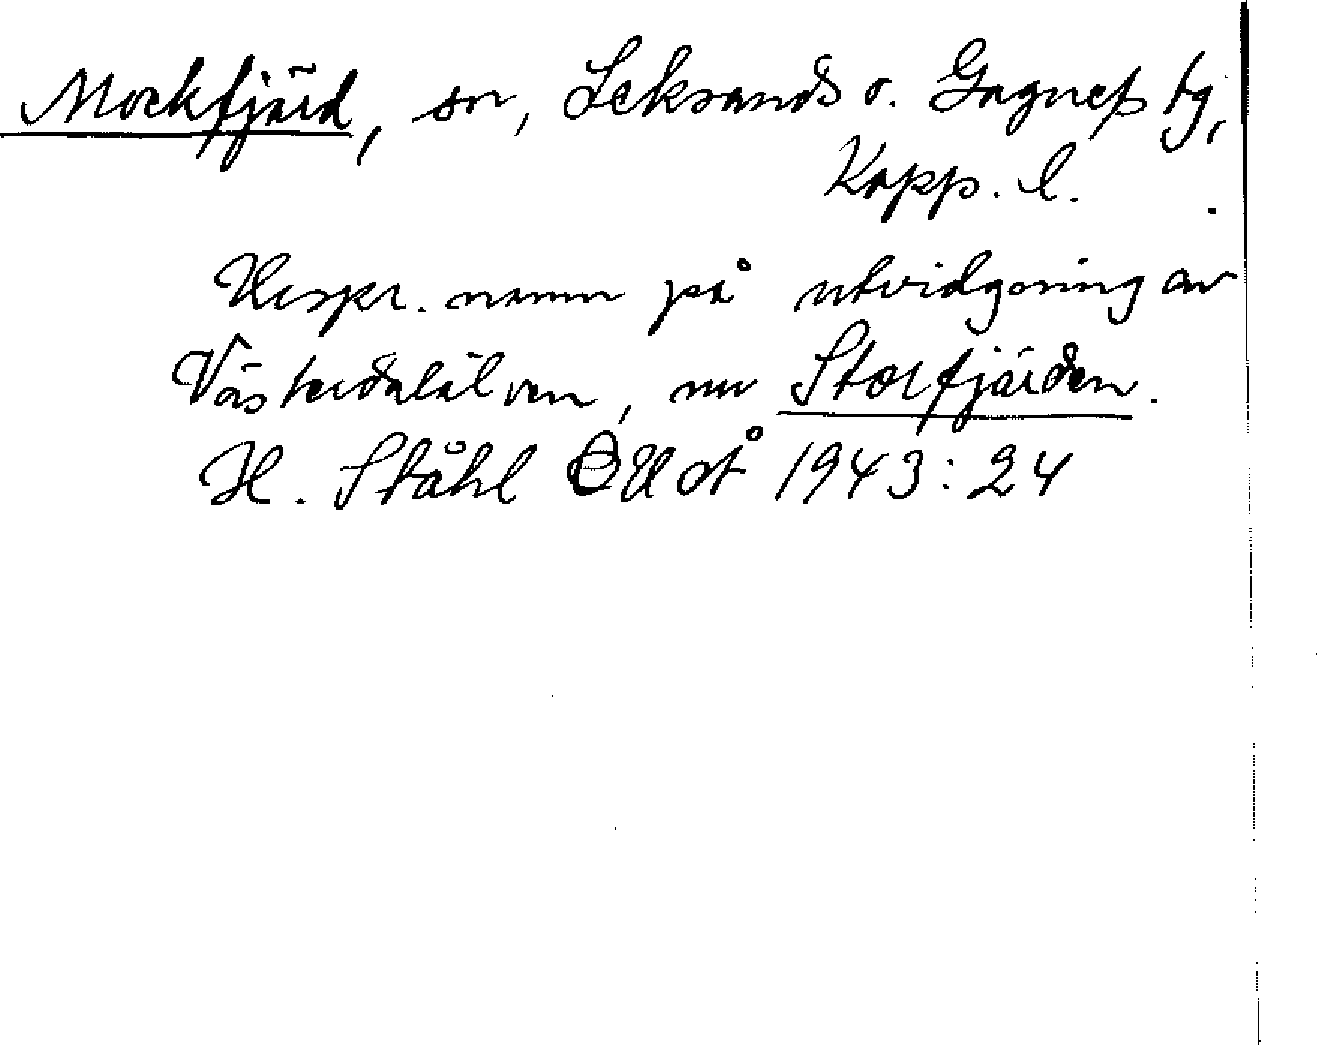 Mockfjärd, sn, Leksands o. Gagnefs tg,
Kopp. l.
Urspr. namn på utvidgning av
Västerdalälven, nu Storfjärden.
H. Ståhl OUÅ 1943:24